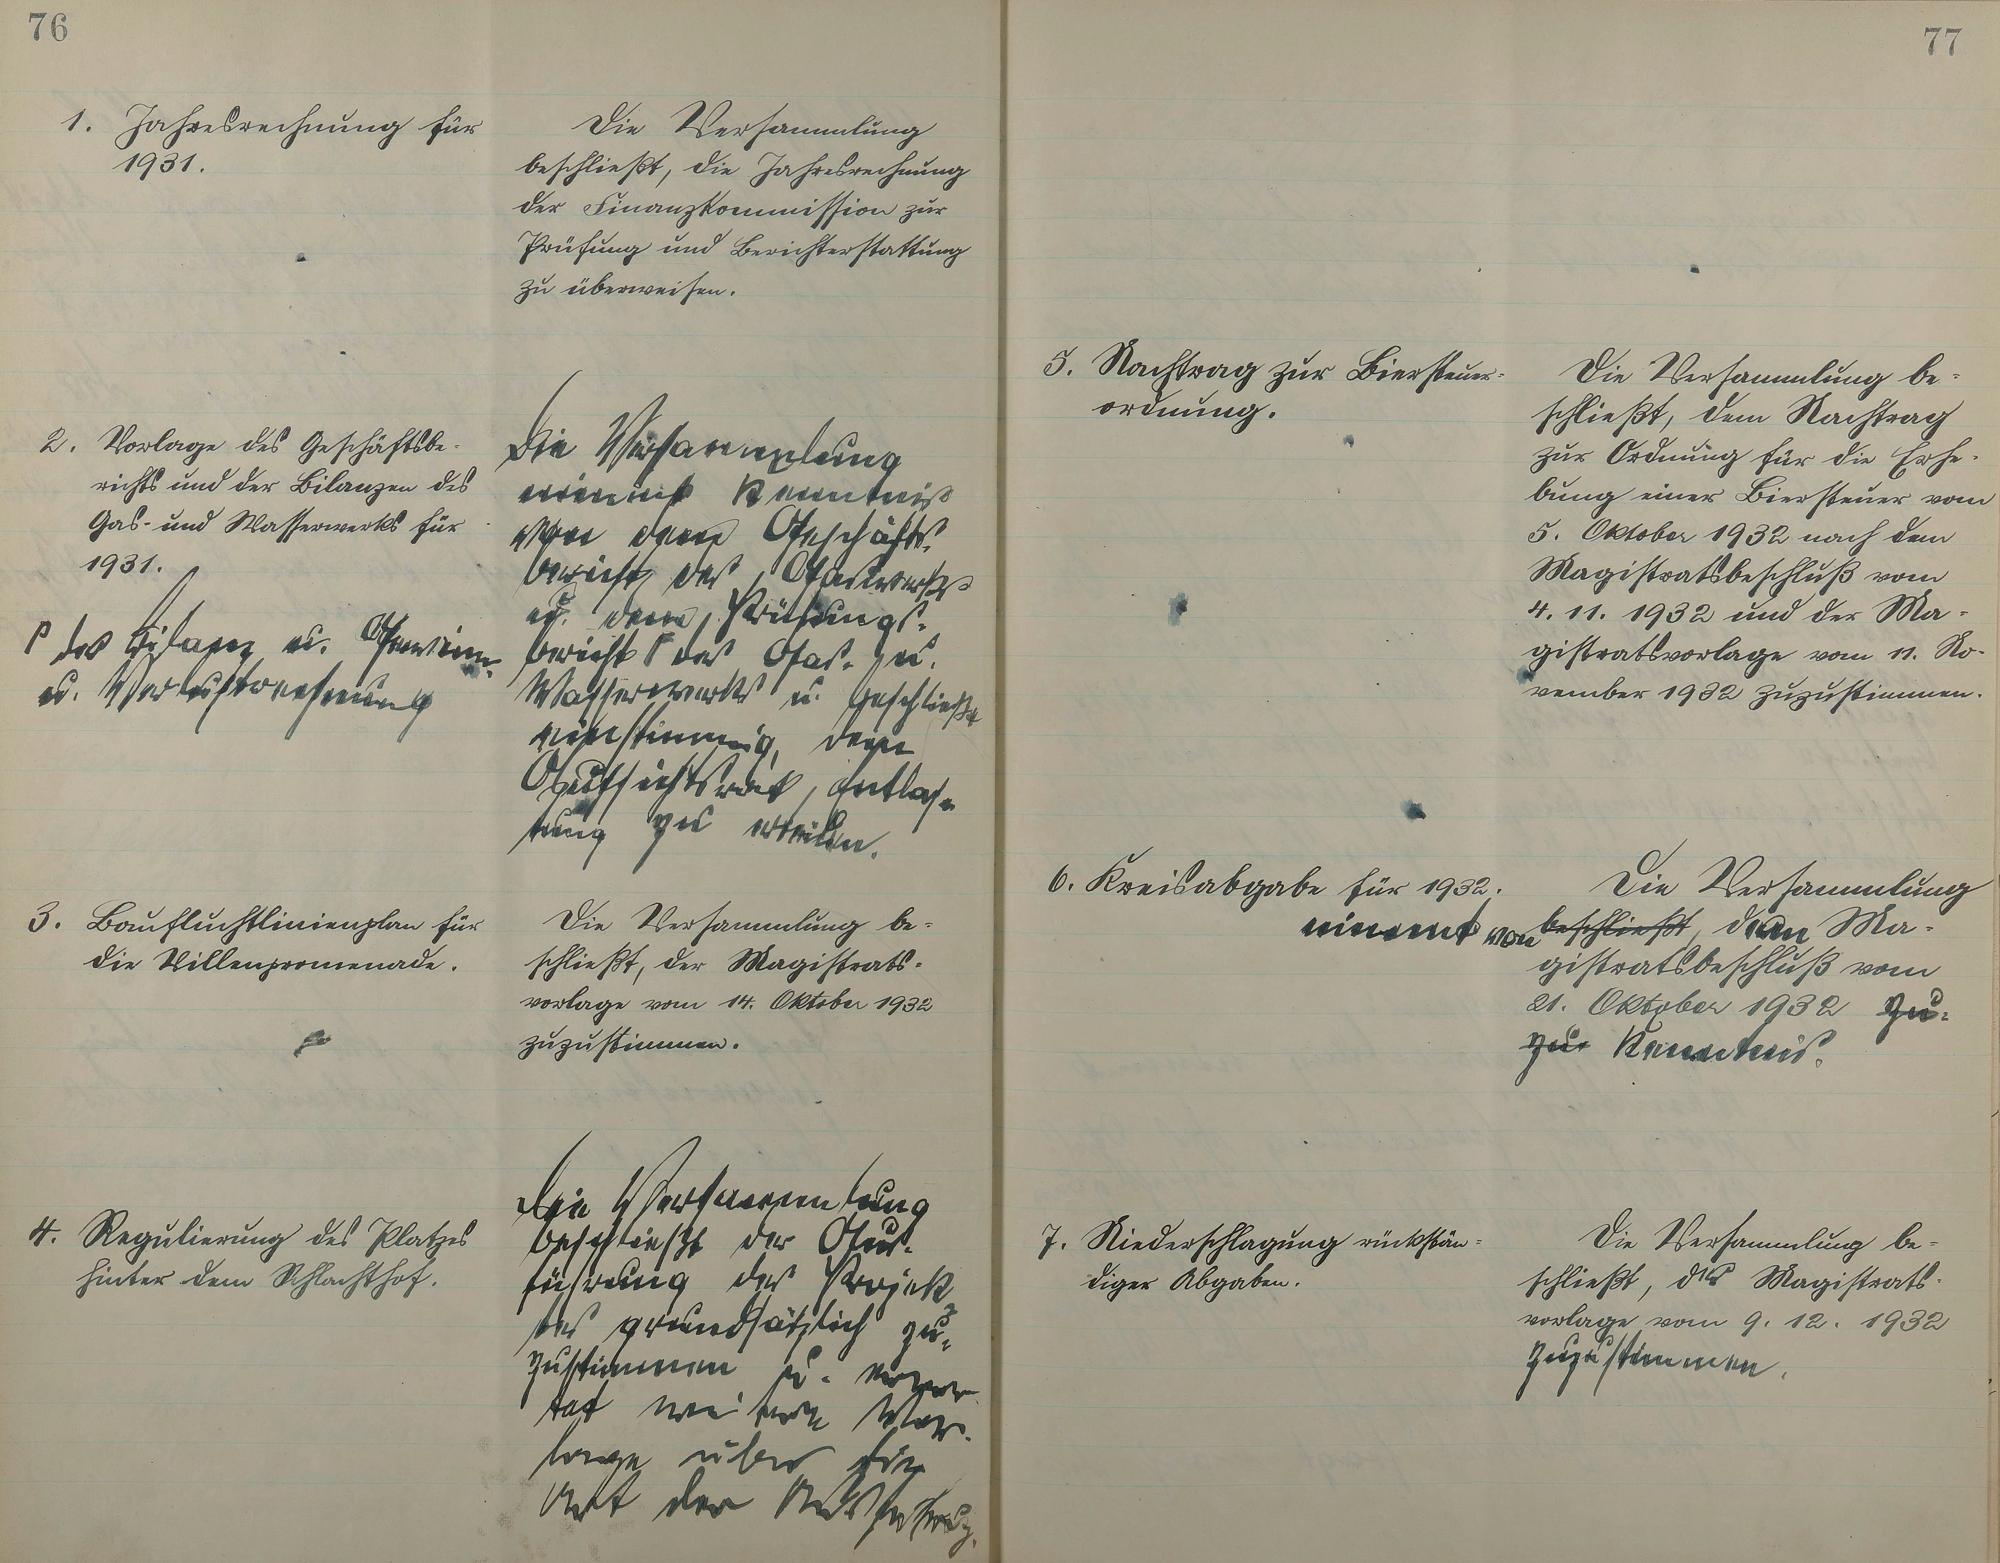 76
1. Jahresrechnung für
1931.
Die Versammlung
beschließt, die Jahresrechnung
der Finanzkommission zur
Prüfung und Berichterstattung
zu überweisen.
2. Vorlage des Geschäftsbe-
richts und der Bilanzen des
Gas- und Wasserwerks für
1931.
Γ der Bilanz u. Gewinn-
u. Verlustrechnung
Die Versammlung
nimmt Kenntnis
von dem Geschäfts-
bericht des Gaswerks
u. dem Prüfungs-
bericht Γ des Gas- u.
Wasserwerks u. beschließt
einstimmig, dem
Aufsichtsrat Entlas-
tung zu erteilen.
3. Baufluchtlinienplan für
die Villenpromenade.
Die Versammlung be-
schließt, der Magistrats-
vorlage vom 14. Oktober 1932
zuzustimmen.
4. Regulierung des Platzes
hinter dem Schlachthof.
Die Versammlung
beschließt der Aus-
führung des Projek
tes grundsätzlich zu-
zustimmen u. erwar
tet weitere Vor-
lage über die
Art der Ausführung.
77
5. Nachtrag zur Biersteuer-
ordnung.
Die Versammlung be-
schließt, dem Nachtrag
zur Ordnung für die Erhe-
bung einer Biersteuer vom
5. Oktober 1932 nach dem
Magistratsbeschluß vom
4. 11. 1932 und der Ma-
gistratsvorlage vom 11. No-
vember 1932 zuzustimmen.
6. Kreisabgabe für 1932.
Die Versammlung
nimmt von beschließt, dem Ma-
gistratsbeschluß vom
21. Oktober 1932 zu-
zur Kenntnis.
7. Niederschlagung rückstän-
diger Abgaben.
Die Versammlung be-
schließt, der Magistrats-
vorlage vom 9. 12. 1932
zuzustimmen.